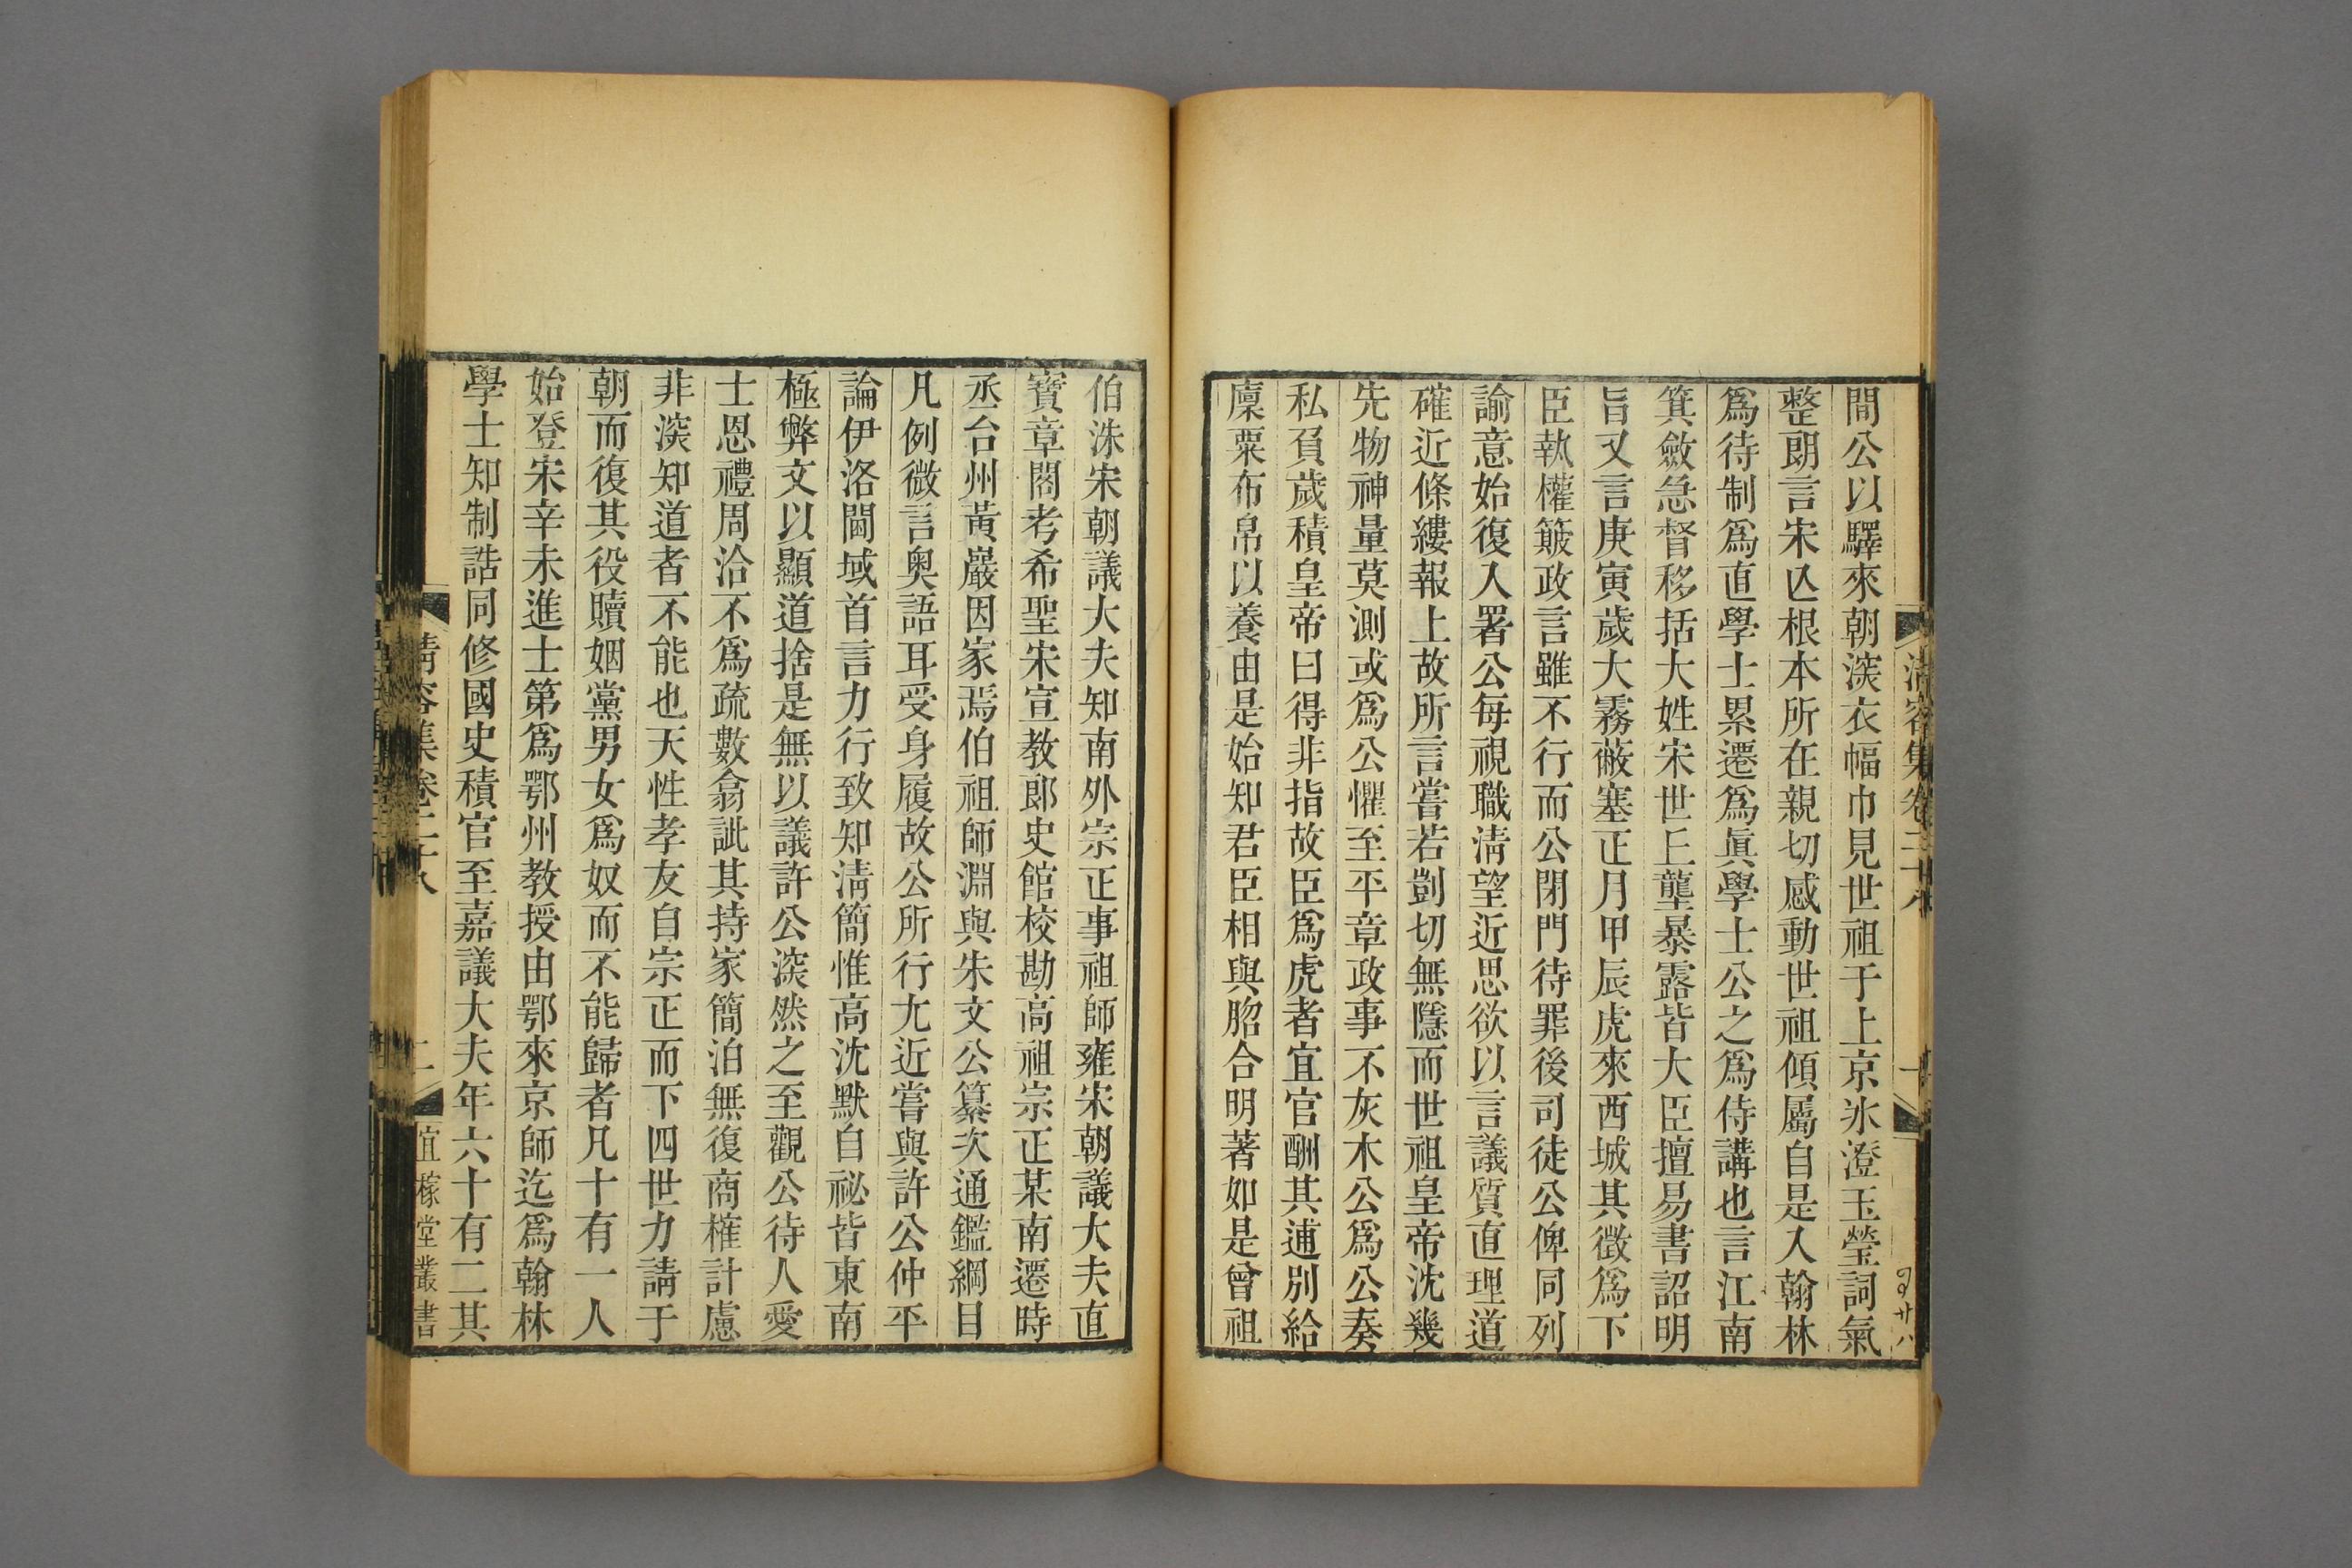 清容集卷二十八
一
間公以驛來朝㴱衣幅巾見世祖于上京氷澄玉瑩詞氣
整朗言宋亾根本所在親切感動世祖傾屬自是入翰林
爲待制爲直學士累遷爲眞學士公之爲侍講也言江南
箕斂急督移括大姓宋世丘壟暴露皆大臣擅易書詔明
旨又言庚寅歲大霧蔽塞正月甲辰虎來西城其徵爲下
臣執權簸政言雖不行而公閉門待罪後司徒公俾同列
諭意始復入署公每視職淸望近思欲以言議質直理道
確近條縷報上故所言嘗若剴切無隱而世祖皇帝沈幾
先物神量莫測或爲公懼至平章政事不灰木公爲公奏
私負歲積皇帝曰得非指故臣爲虎者宜官酬其逋別給
廩粟布帛以養由是始知君臣相與脗合明著如是曾祖
伯洙宋朝議大夫知南外宗正事祖師雍宋朝議大夫直
寶章閣考希聖宋宣教郎史館校勘高祖宗正某南遷時
丞台州黃巖因家焉伯祖師淵與朱文公纂次通鑑綱目
凡例微言奧語耳受身履故公所行尤近嘗與許公仲平
論伊洛閫域首言力行致知淸簡惟高沈默自祕皆東南
極弊文以顯道捨是無以議許公㴱然之至觀公待人愛
士恩禮周洽不爲疏數翕訿其持家簡泊無復商榷計慮
非㴱知道者不能也天性孝友自宗正而下四世力請于
朝而復其役贖姻黨男女爲奴而不能歸者凡十有一人
始登宋辛未進士第爲鄂州教授由鄂來京師迄爲翰林
學士知制誥同修國史積官至嘉議大夫年六十有二其
清容集卷二十八
二
宜稼堂叢書